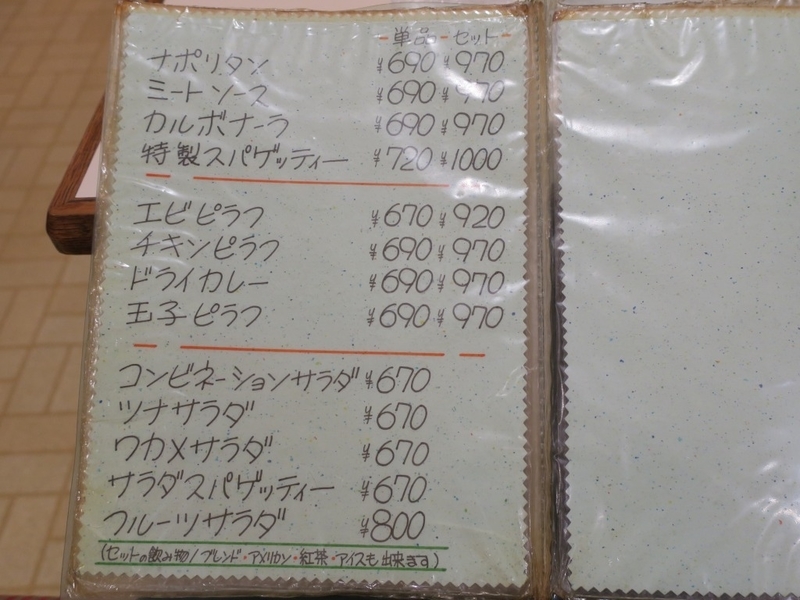 - 単品 - セット -
ナポリタン ¥690 ¥970
ミートソース ¥690 ¥970
カルボナーラ ¥690 ¥970
特製スパゲッティー ¥720 ¥1000
エビピラフ ¥670 ¥920
チキンピラフ ¥690 ¥970
ドライカレー ¥690 ¥970
玉子ピラフ ¥690 ¥970
コンビネーションサラダ ¥670
ツナサラダ ¥670
ワカメサラダ ¥670
サラダスパゲッティー ¥670
フルーツサラダ ¥800
(セットの飲み物/ブレンド・アメリカン・紅茶・アイスも出来ます)